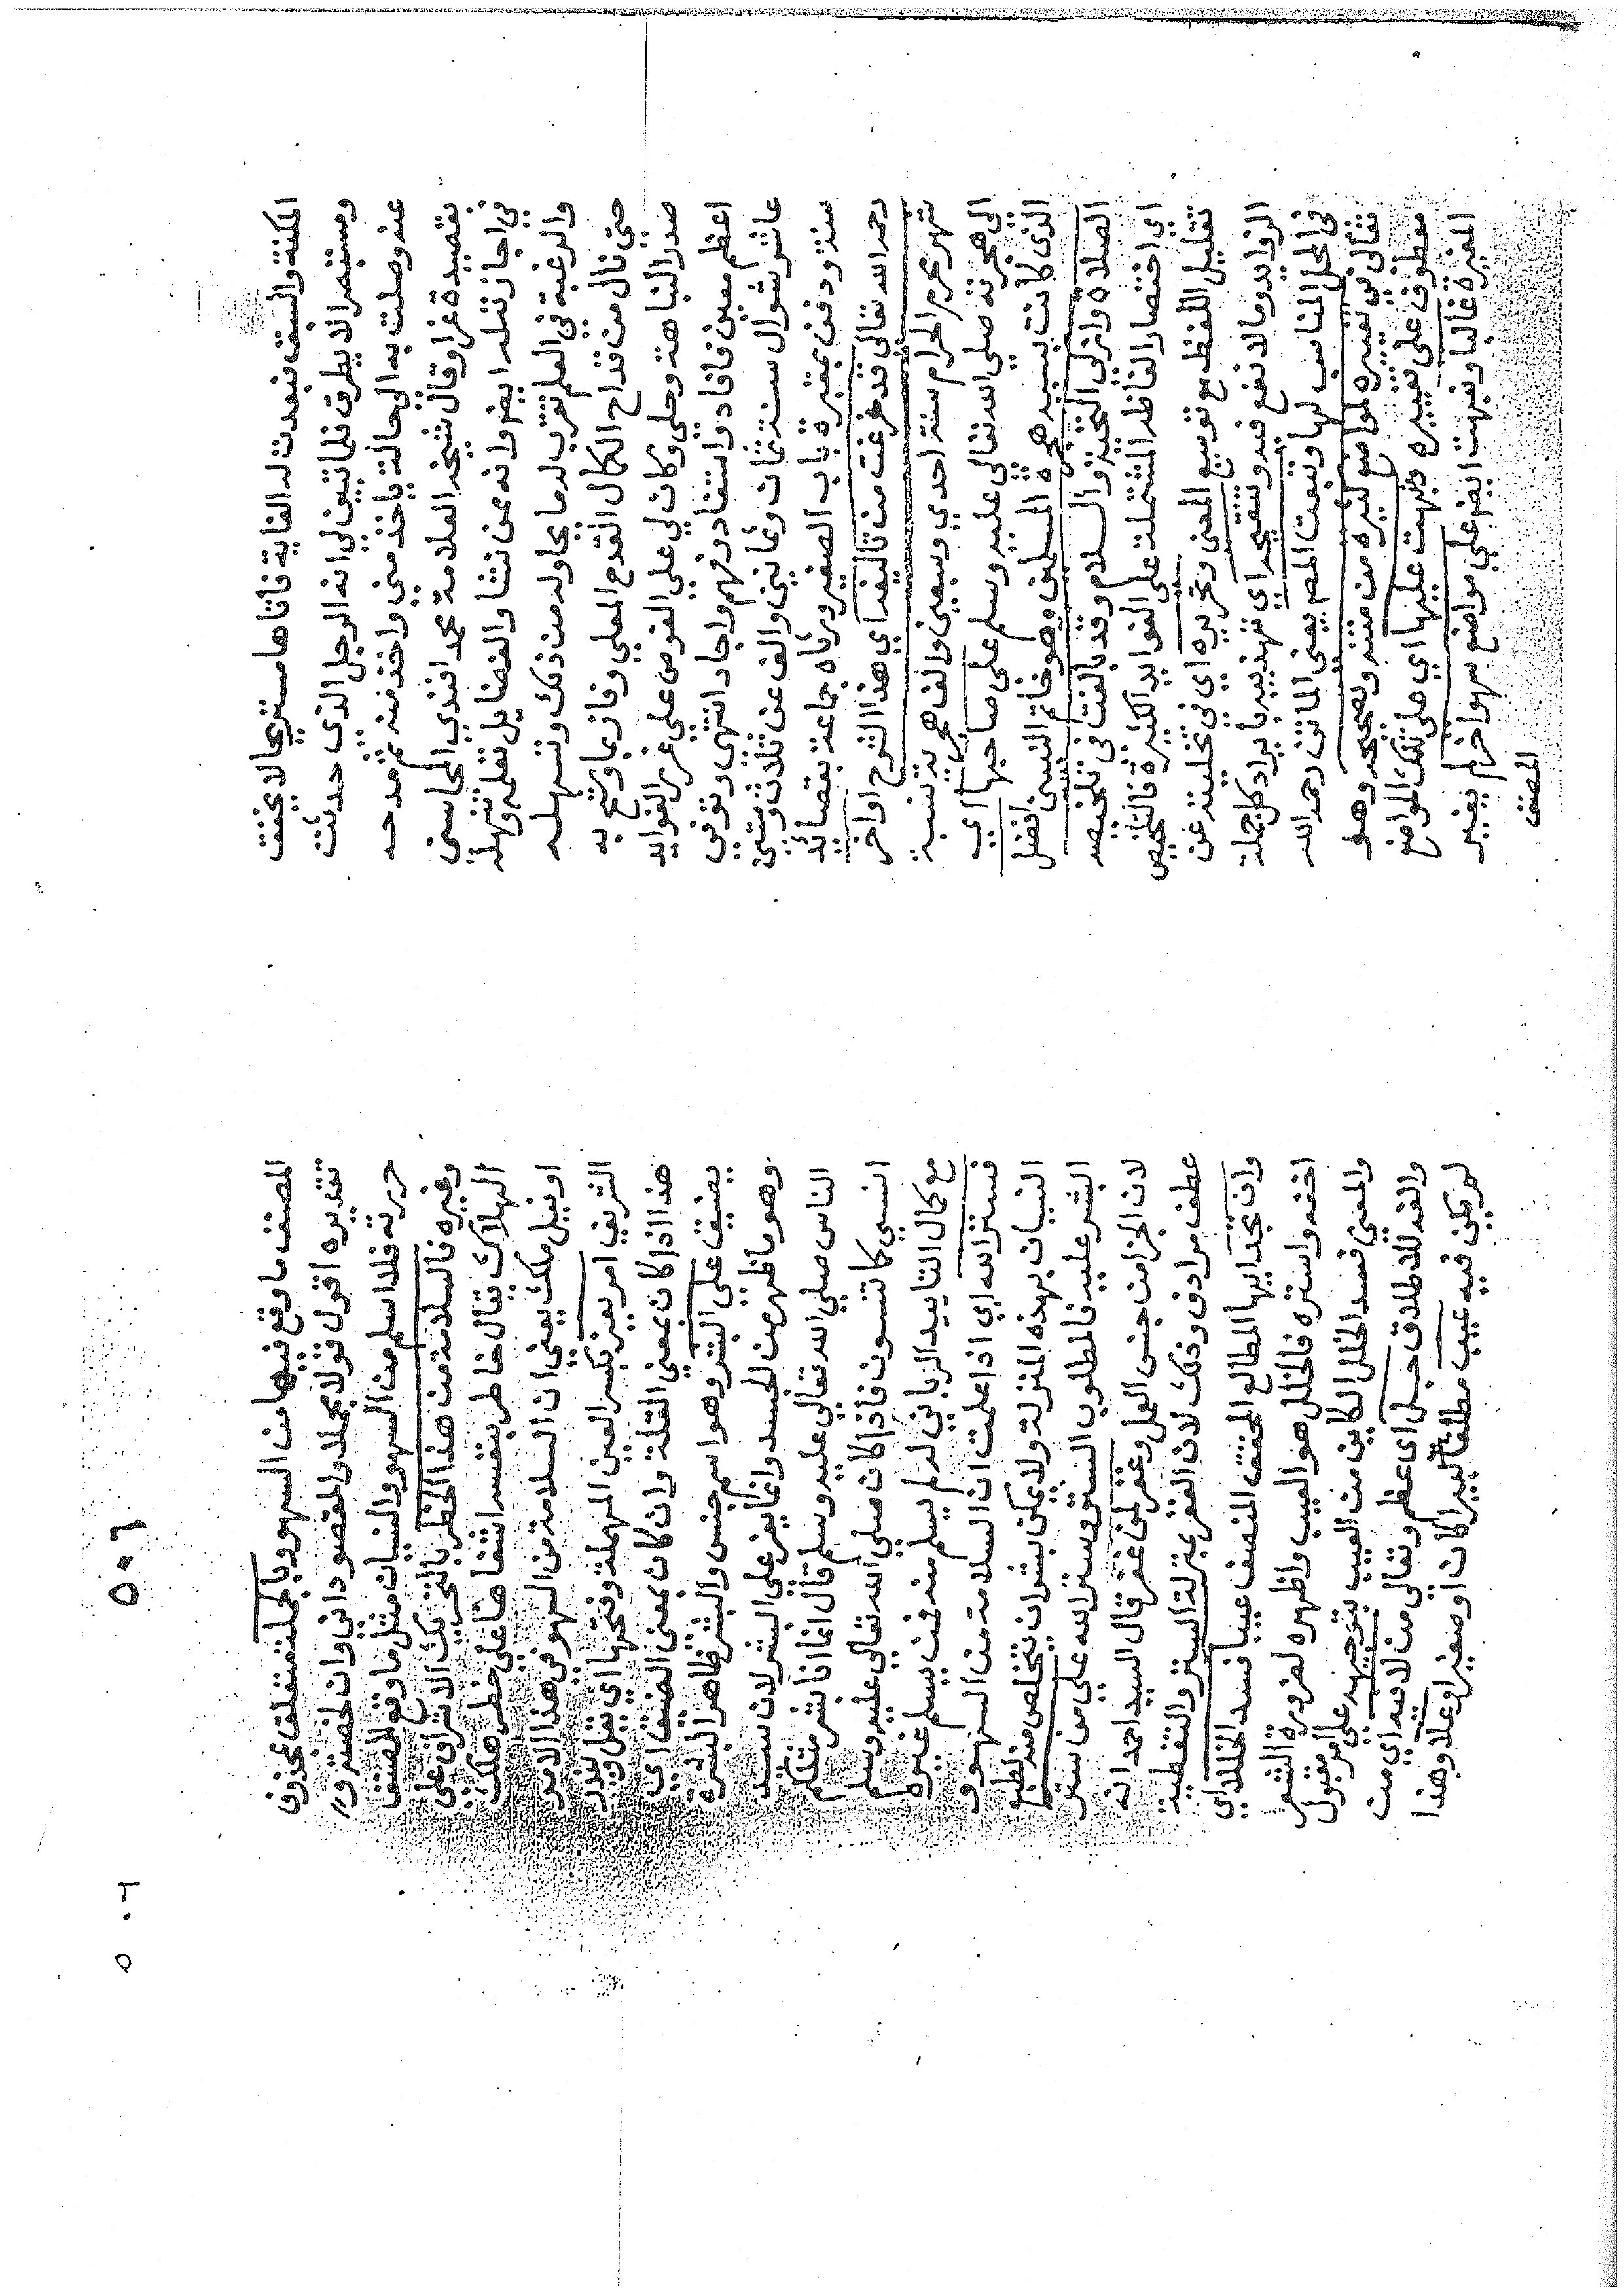 المكنة والسبق فبعدت له الغاية فأتاها مستريحا لا يختت
ومستبصر الا يطرق فلما تيقن لي انه الرجل الذى حدثت
عنه وصلت به الى حالة ياخذ مني واخذ منه ثم مدحه
بقصيدة غرا وقال شيخه العلامة محمد افندي المحاسنى
في اجازته له ايضا وانه ممن نشا والفضايل تعلمه وتنهله
والرغبة في العلم تقرب له ما يحاوله من ذلك وتسهله
حتى نال من قداح الكمال القدح المعلي وفاز بما وشح به
صدر النباهة وحلى وكان لي علي الغوص على غرر الفوايد
اعظم معين فافاد واستفاد وفهم واجاد انتهى وتوفي
عاشر شوال سنة ثمان وثمانين والف عن ثلاث وستين
سنة ودفن بمقبرة باب الصغير ورثاه جماعة بقصائد
رحمه الله تعالى قد فرغت من تاليفه اي هذا الشرح اواخر
شهر محرم الحرام سنة احدي وسبعين والف هجرية نسبة
الى هجرته صلي الله تعالى عليه وسلم على صاحبها اي
الذى كانت بسببه هجرة المسلمين وهو خاتم النبيين افضل
الصلاة وازكى التحية والسلام وقد بالغت فى تلخيصه
اي اختصار الفاظه المشتملة على الفوايد الكثيرة فالتلخيص
تقليل اللفظ مع توسيع المعنى وتحريره اي في تخليته عن
الزوايد وما لا نفع فيه وتنقيحه اي تهذيبه بايراد كل جملة
فى المحل المناسب لها وتبعت المص يعنى الماتن رحمه الله
تعالى في تغييره لمواضع كثيره من متنه وتصحيحه وهو
معطوف على تغييره ونبهت عليها اي على تلك المواضع
المغيرة غالبا ونبهت ايضا علي مواضع سهو اخر لم يغير
المصنف
٥٠٦
المصنف ما وقع فيها من السهو وبالجملة متعلق بمحذوف
تقديره اقول قولا مجملا والمقصود اني وان اختصرت و
حررته فلا اسلم من السهو والنسيان مثل ما وقع للمصنف
وغيره فالسلامة من هذا الخطر بالتحريك الاشراف على
الهلاك يقال خاطر بنفسه اشفاها على خطر هلك
او نيل ملك يعني ان السلامة من السهو في هذا الامر
الشريف امر يعز بكسر العين المهملة وفتحها اي يقل ويندر
هذا اذا كان بمعني القلة وان كان بمعنى المشقة اي
يضيق علي البشر وهو اسم جنس والبشر ظاهر البشرة
وهو ما ظهر من الجسد وانما يعز على البشر لان سيد
الناس صلي الله تعالي عليه وسلم قال انما انا بشر مثلكم
انسى كما تنسون فاذا كان صلي الله تعالى عليه وسلم
مع كمال التاييد الرباني له لم يسلم منه فمن يسلم غيره
فستر الله اي اذا علمت ان السلامة من السهو و
النسيان بهذه المنزلة ولا يمكن بشر ان يتخلص منه لطبع
البشر عليه فالمطلوب الستر وستر الله على من ستر
لان الجزا من جنس العمل وغفر لمن غفر قال السيد احمد انه
عطف مرادف وذلك لان الغفر بمنزلة الستر والتغطية
وان تجد ايها المطالع المحقق المنصف عيبا فسد الخللا اي
اخفه واستره فالخلل هو العيب واظهره لضرورة الشعر
والمعني فسد الخلل الكاين من العيب بتوجيهه علي امر مقبول
والفه للاطلاق جل اى عظم وتعالي من لا فيه اي من
لم يكن فيه عيب مطلقا كبيرا كان او صغيرا وعلا وهذا
٥٠٦